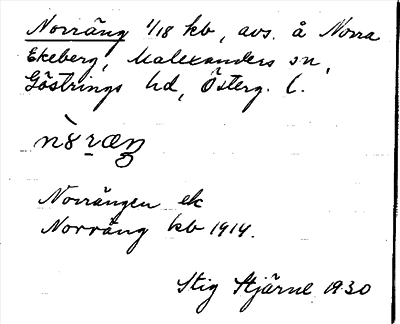 Norräng 1/18 kb, avs. å Norra
Ekeberg, Malexanders sn,
Göstrings hd, Österg. l.
Norrängen ek
Norräng kb 1914.
Stig Stjärne 1930